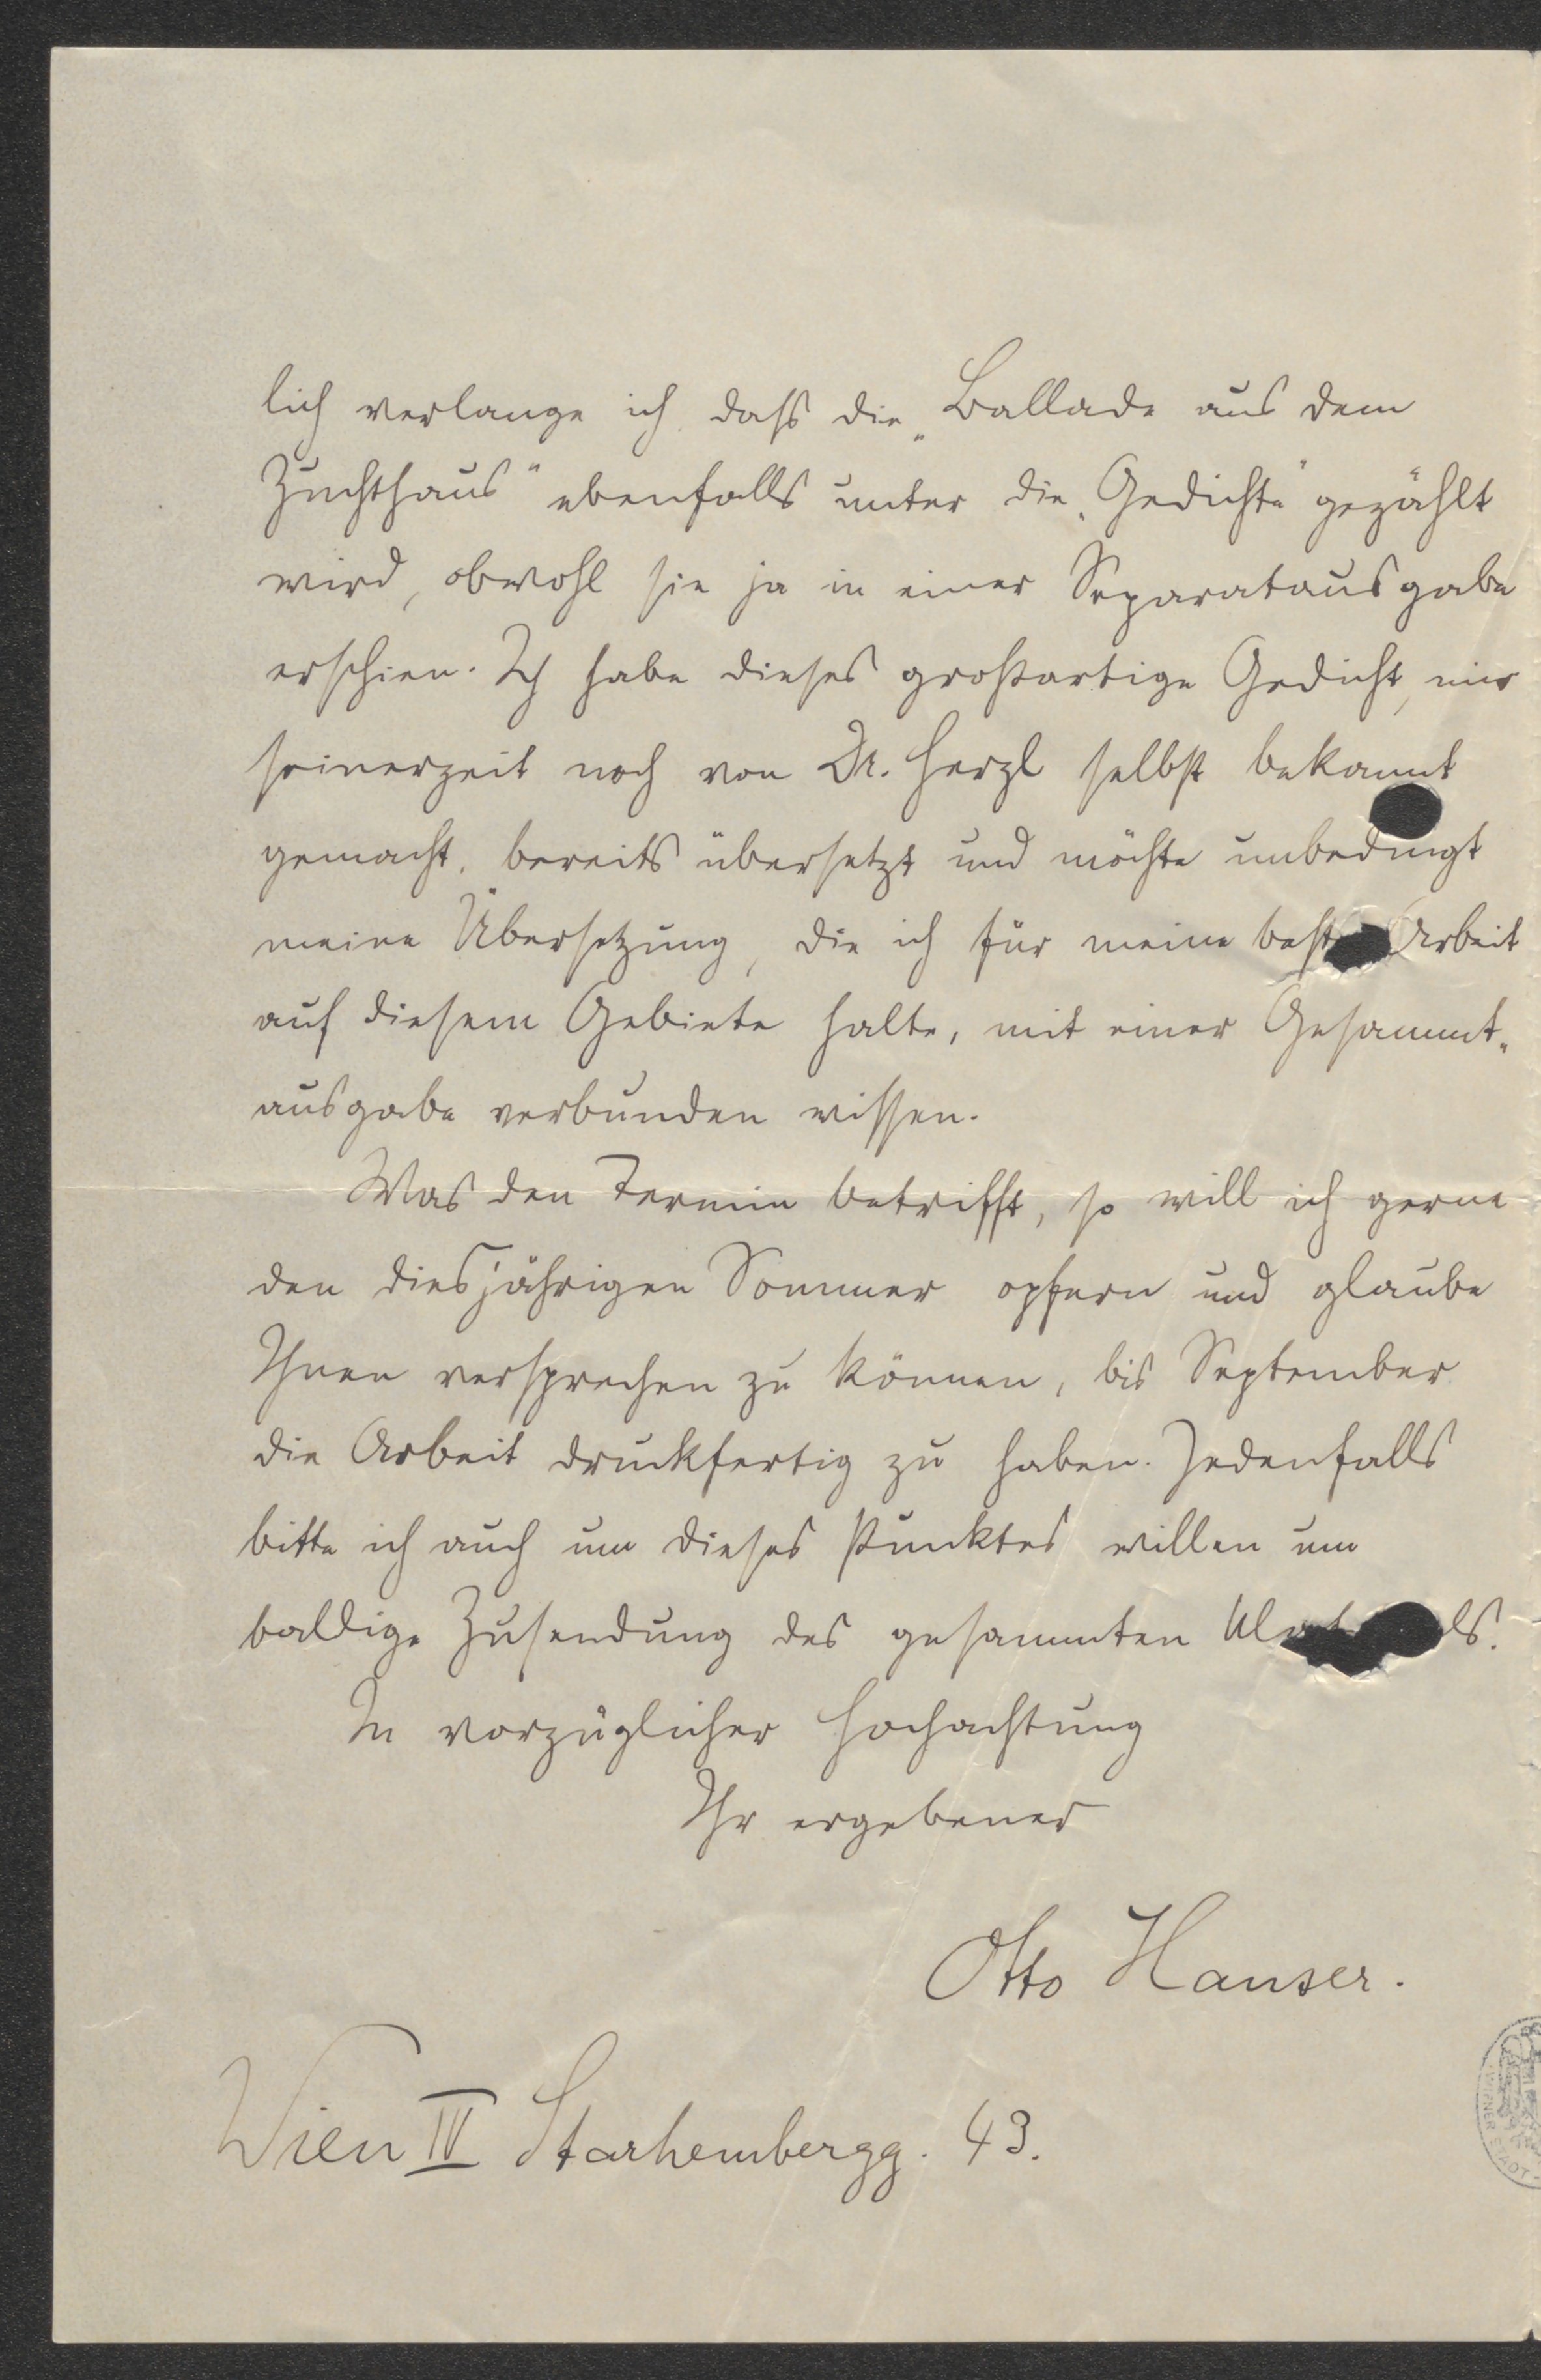 lich verlange ich, dass die „Ballade aus dem
Zuchthaus" ebenfalls unter die „Gedichte" gezählt
wird, obwohl sie ja in einer Separatausgabe
erschien. Ich habe dieses großartige Gedicht, mir
seinerzeit noch von Dr. Herzl selbst bekannt
gemacht, bereits übersetzt und möchte unbedingt
meine Übersetzung, die ich für meine beste Arbeit
auf diesem Gebiete halte, mit einer Gesammt-
ausgabe verbunden wissen.
Was den Termin betrifft, so will ich gerne
den diesjährigen Sommer opfern und glaube
Ihnen versprechen zu können, bis September
die Arbeit druckfertig zu haben. Jedenfalls
bitte ich auch um dieses Punktes willen um
baldige Zusendung des gesammten
In vorzüglicher Hochachtung
Ihr ergebener
Otto Hauser.
Wien IV Starhembergg. 43.
WIENER STADT-